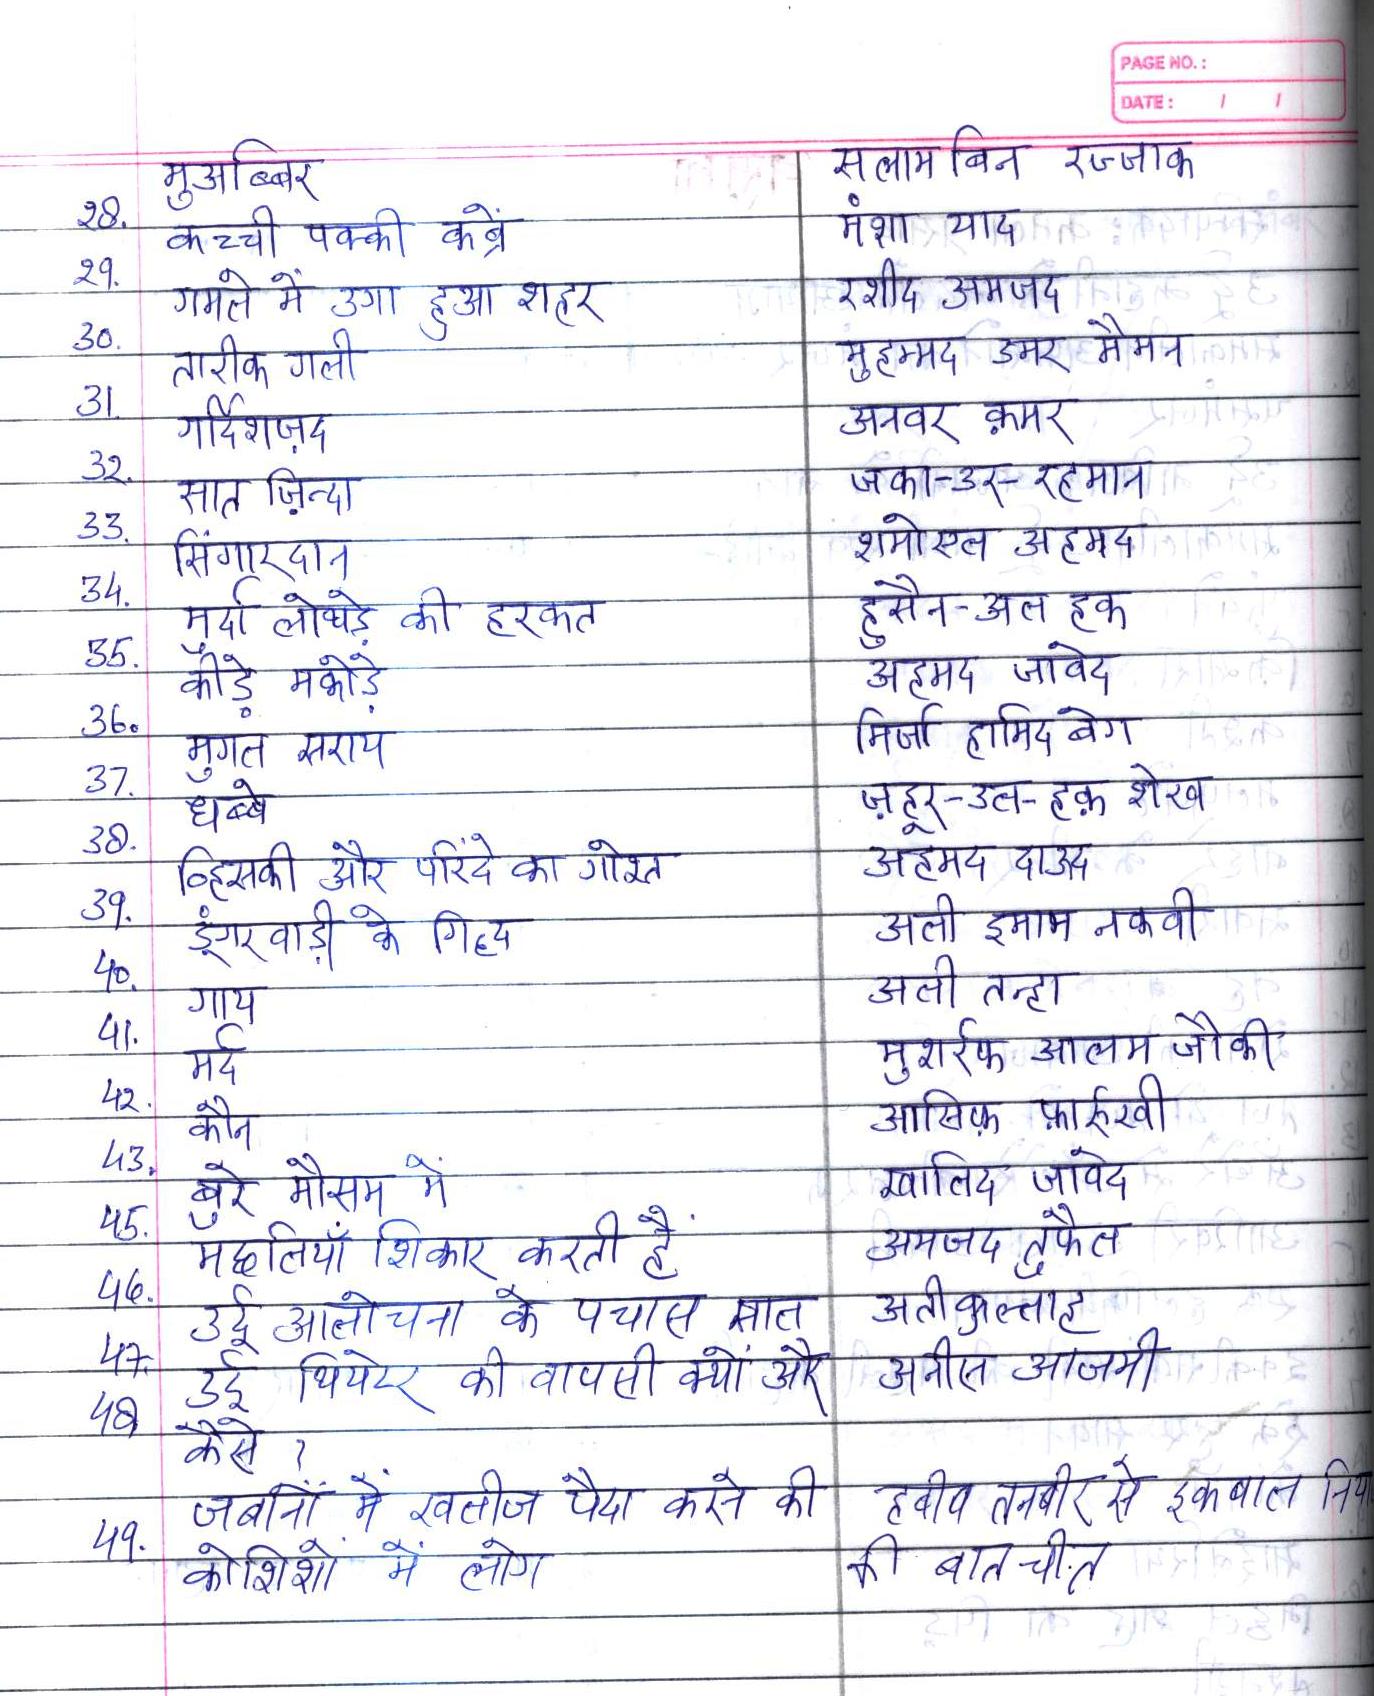 PAGE NO.:
DATE: / /
28. मुअब्बिर सलाम बिन रज्जाक
29. कच्ची पक्की कब्रें मंशा याद
30. गमले में उगा हुआ शहर रशीद अमजद
31. तारीक गली मुहम्मद उमर मैमन
32. गर्दिशज़द अनवर क़मर
33. सात ज़िन्दा जका-उर-रहमान
34. सिंगारदान शमोएल अहमद
35. मुर्दा लोथड़े की हरकत हुसैन-अल हक
36. कीड़े मकोड़े अहमद जावेद
37. मुगल सराय मिर्जा हामिद बेग
38. धब्बे ज़हूर-उल-हक़ शेख
39. व्हिसकी और परिंदे का गोश्त अहमद दाउद
40. डूंगरवाड़ी के गिद्ध अली इमाम नकवी
41. गाय अली तन्हा
42. मर्द मुशर्रफ आलम जौकी
43. कौन आसिफ़ फ़ार्रूखी
45. बुरे मौसम में खालिद जावेद
46. मछलियाँ शिकार करती हैं अमजद तुफैल
47. उर्दू आलोचना के पचास साल अतीकुल्लाह
48 उर्दू थियेटर की वापसी क्यों और अनीस आजमी
कैसे ?
49. जबानों में खलीज पैदा करने की हबीब तनबीर से इकबाल
कोशिशों में लोग की बातचीत